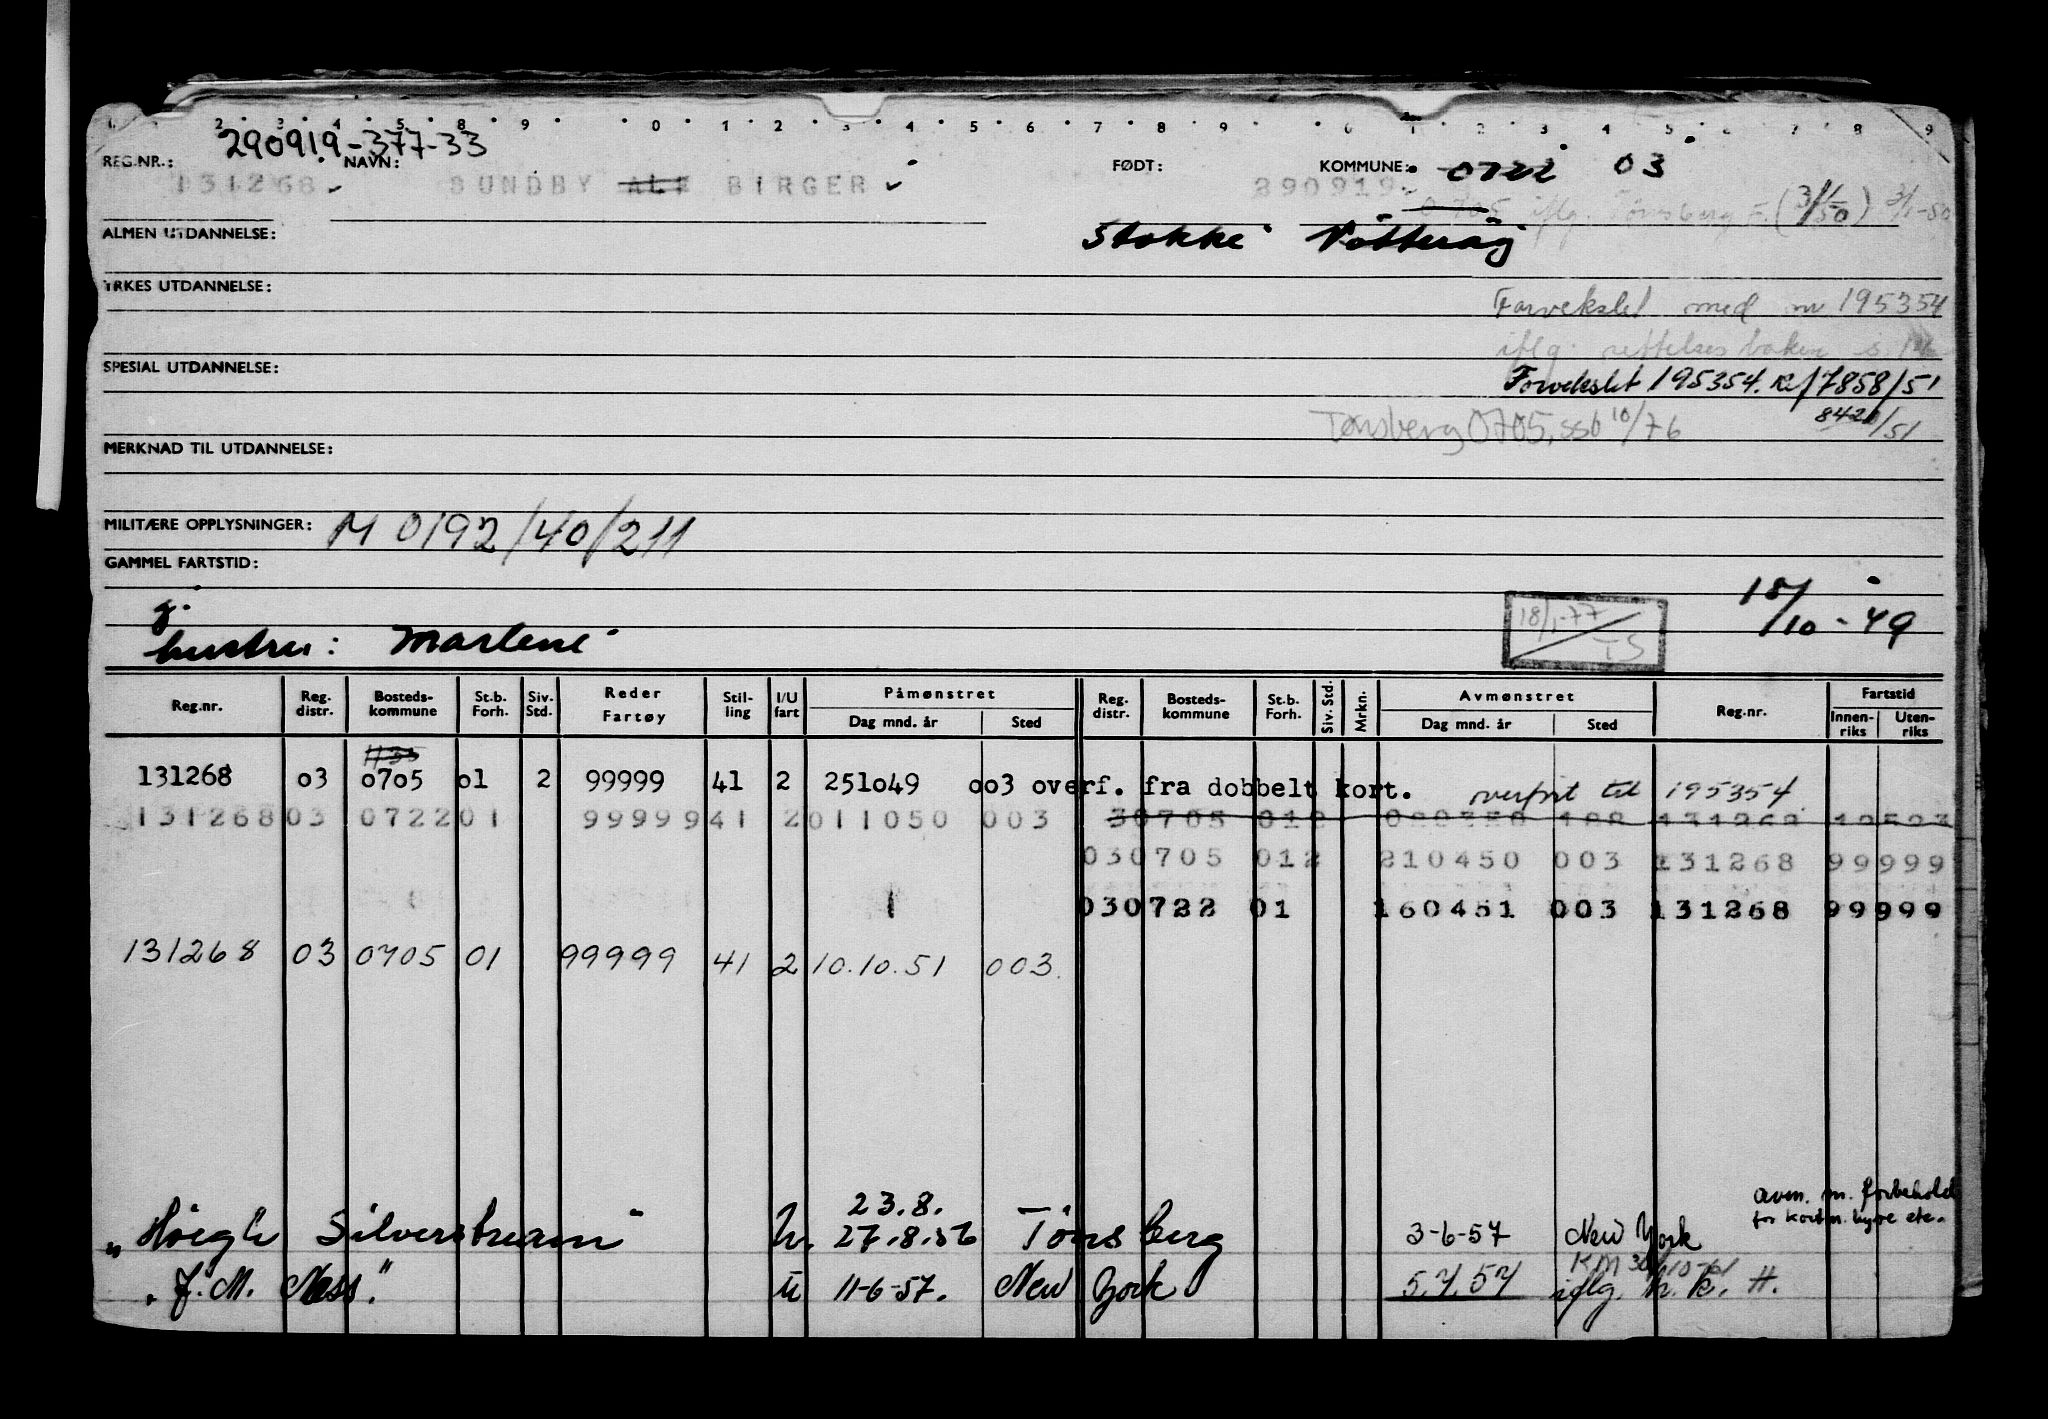 1 2 3 4 5 8 9 0 1 2 3 4 5 6 7 8 9 0 1 2 3 4 5 6 7 8 9
290919-377-33
REG.NR.: NAVN: FØDT: KOMMUNE: 0722 03
131268 SUNDBY ALF BIRGER 290919
0705 iflg. Tønsberg F. (3/1-50) 3/1-50
ALMEN UTDANNELSE: Stokke Nøtterøy
YRKES UTDANNELSE:
Forvekslet med nr 195354
iflg. rettelses boken s.
SPESIAL UTDANNELSE: Forvekslet 195354. Ref 7858/51
Tønsberg 0705, ssb 10/76 8421/51
MERKNAD TIL UTDANNELSE:
MILITÆRE OPPLYSNINGER: M 0192/40/211
GAMMEL FARTSTID:
g. 18/1-77 TS 18/10-49
hustru: Marlene
Reg.nr. Reg. distr. Bosteds-kommune St.b. Forh. Siv. Std. Reder Fartøy Stil-ling I/U fart Påmønstret Dag mnd. år Sted Reg. distr. Bosteds-kommune St.b. Forh. Siv. Std. Mrkn. Avmønstret Dag mnd. år Sted Reg.nr. Fartstid Innen-riks Uten-riks
1133
131268 03 0705 01 2 99999 41 2 251049 003 overf. fra dobbelt kort. overført til 195354
131268 03 0722 01 99999 41 2 011050 003 30705 012 131268
030705 012 210450 003 131268 99999
030722 01 160451 003 131268 99999
131268 03 0705 01 99999 41 2 10.10.51 003
23.8. avm. m. forbehold
"Høegh Silverstream" U. 27.8.56 Tønsberg 3-6-57 New York for kort m. hyre etc.
"J. M. Ness." U 11-6-57. New York 5.7.57 iflg. M. K. H.